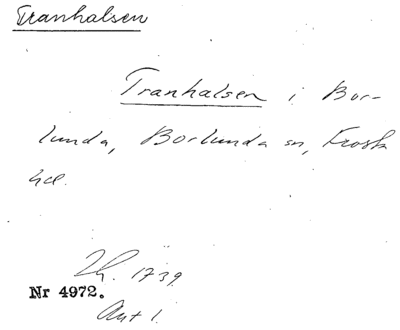 Tranhalsen
Tranhalsen i Bor-
lunda, Borlunda sn, Frosta
hd.
1739
Nr 4972.
Akt 1.